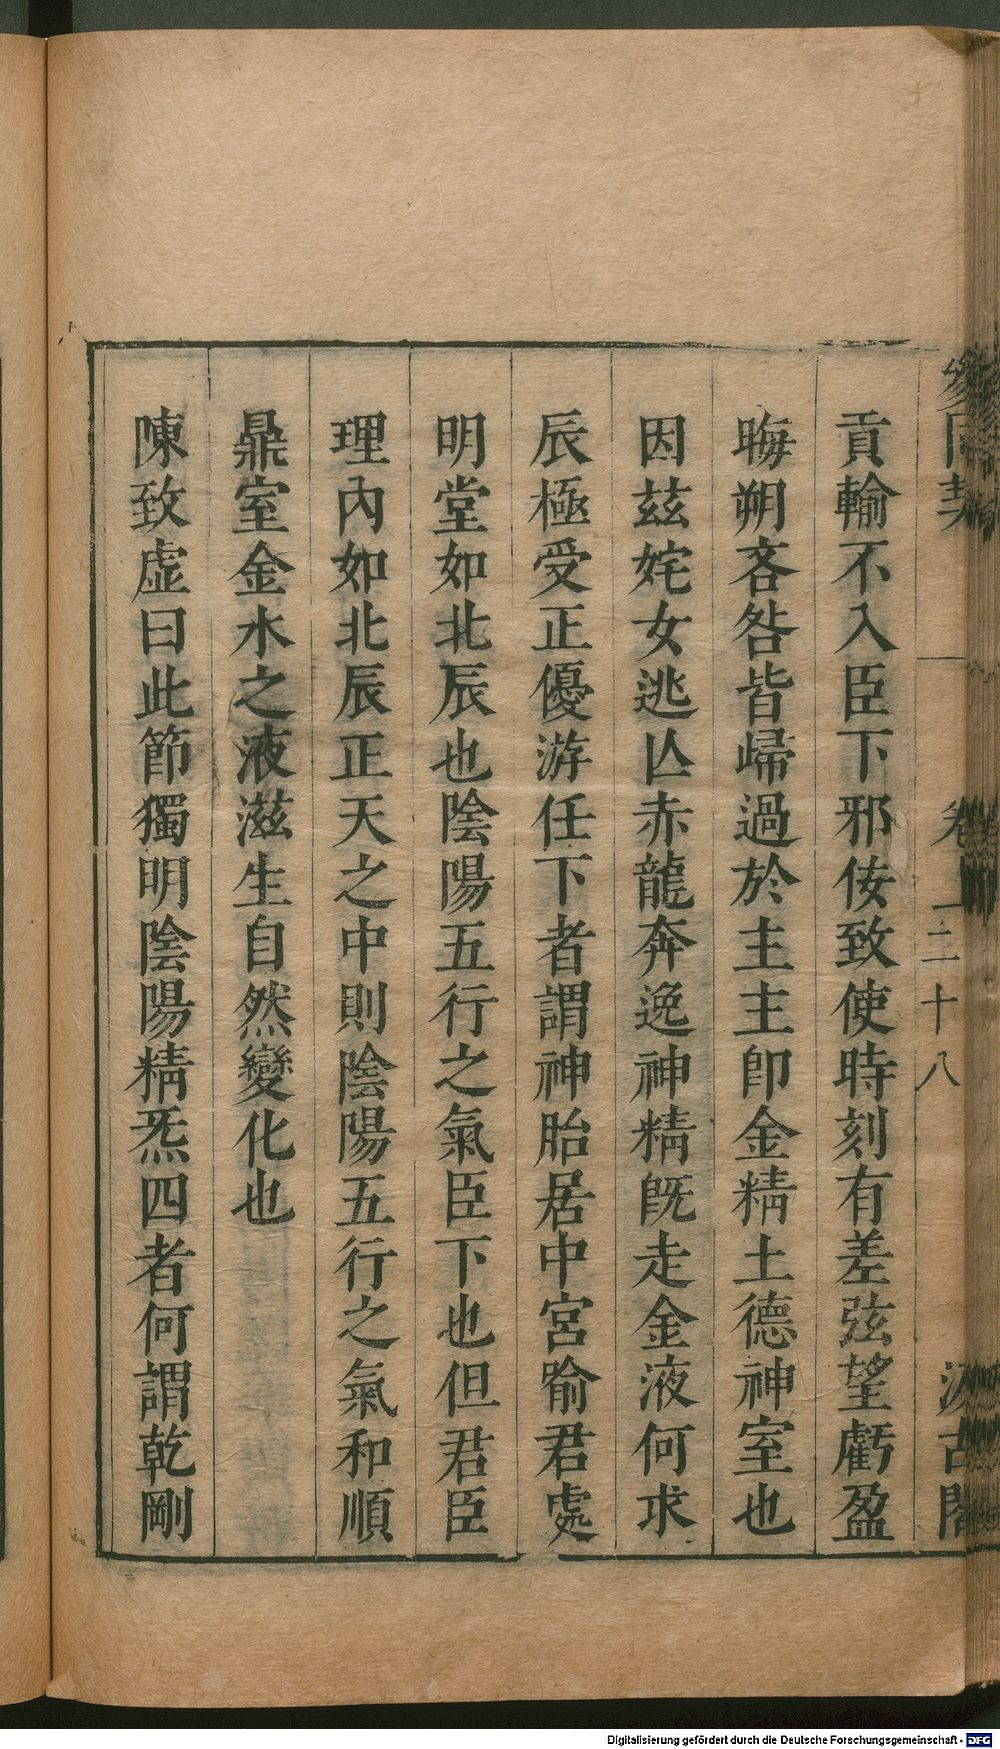 參同契 卷上 二十八 汲古閣
貢輸不入臣下邪佞致使時刻有差弦望虧盈
晦朔吝咎皆歸過於主主卽金精土德神室也
因茲姹女逃亾赤龍奔逸神精旣走金液何求
辰極受正優游任下者謂神胎居中宮喻君處
明堂如北辰也陰陽五行之氣臣下也但君臣
理內如北辰正天之中則陰陽五行之氣和順
鼎室金水之液滋生自然變化也
陳致虛曰此節獨明陰陽精炁四者何謂乾剛
Digitalisierung gefördert durch die Deutsche Forschungsgemeinschaft - DFG